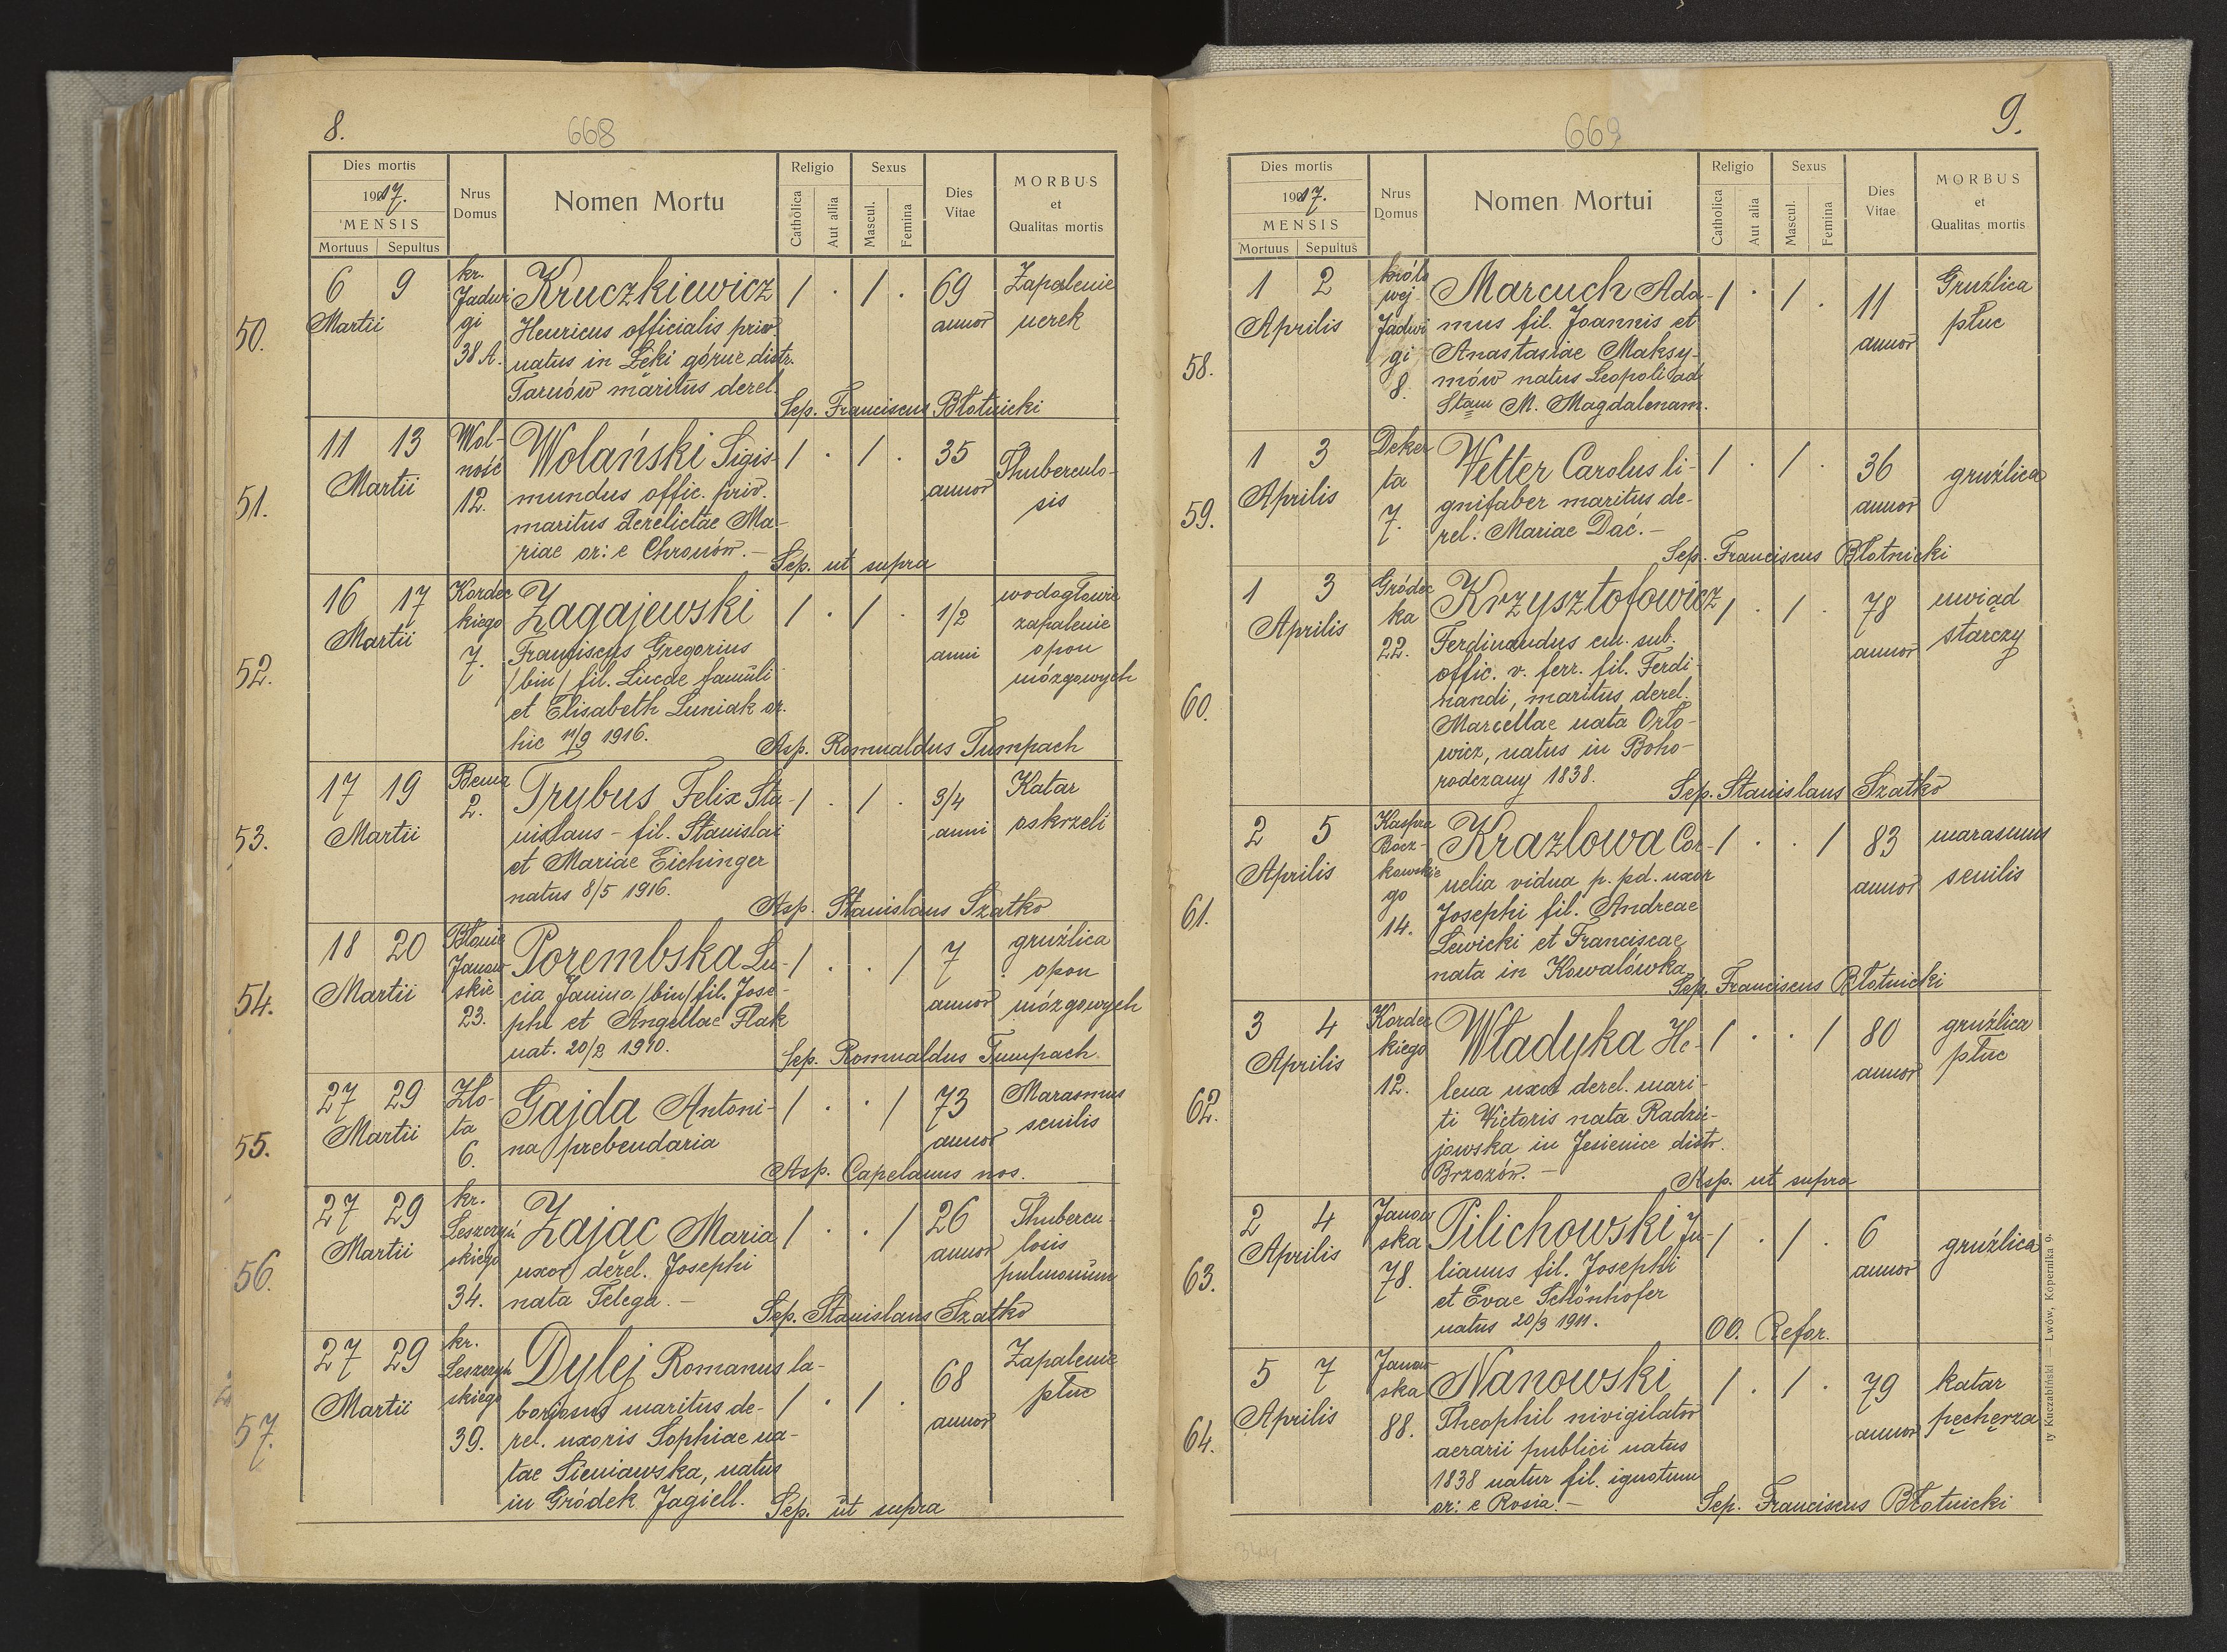 8.
668
Dies mortis
1917.
MENSIS
Mortuus Sepultus
Nrus
Domus
Nomen Mortu
Religio
Catholica
Aut allia
Sexus
Mascul.
Femina
Dies
Vitae
MORBUS
et
Qualitas mortis
50.
6 9
Martii
kr.
Jadwi
gi
38 A.
Kruczkiewicz
Henricus officialis priv.
natus in Łęki górne distr.
Tarnów maritus derel.
1 . 1 .
69
annor
Zapalenie
nerek
Sep. Franciscus Błotnicki
51.
11 13
Martii
Wol-
ność
12.
Wolański Sigis-
mundus offic. priv.
maritus derelictae Ma-
riae or: e Chronów. -
1 . 1 .
35
annor
Thuberculo-
sis
Sep. ut supra
52.
16 17
Martii
Kordec
kiego
7.
Zagajewski
Franciscus Gregorius
/bin/ fil. Lucae famuli
et Elisabeth Luniak or.
hic 11/9 1916.
1 . 1 .
1/2
anni
wodogłowie
zapalenie
opon
mózgowych
Asp. Romualdus Tumpach
53.
17 19
Martii
Bema
2.
Trybus Felix Sta-
nislaus - fil. Stanislai
et Mariae Eichinger
natus 8/5 1916.
1 . 1 .
3/4
anni
Katar
oskrzeli
Asp. Stanislaus Szatko
54.
18 20
Martii
Błonie
Janow
skie
23.
Porembska Lu-
cia Janina /bin/ fil. Jose-
phi et Angellae Flak
nat. 20/2 1910.
1 . . 1
7
annor
gruźlica
opon
mózgowych
Sep. Romualdus Tumpach.
55.
27 29
Martii
Zło-
ta
6.
Gajda Antoni-
na prebendaria
1 . . 1
73
annor
Marasmus
senilis
Asp. Capelanus nos.
56.
27 29
Martii
kr.
Leszczyń
skiego
34.
Zając Maria
uxor derel. Josephi
nata Telega. -
1 . . 1
26
annor
Thubercu-
losis
pulmonum
Sep. Stanislaus Szatko
57.
27 29
Martii
kr.
Leszczyń
skiego
39.
Dylej Romanus la-
boriosus maritus de-
rel. uxoris Sophiae na-
tae Sieniawska, natus
in Gródek Jagiell.
1 . 1 .
68
annor
Zapalenie
płuc
Sep. ut supra
9.
669
Dies mortis
1917.
MENSIS
Mortuus Sepultus
Nrus
Domus
Nomen Mortui
Religio
Catholica
Aut alia
Sexus
Mascul.
Femina
Dies
Vitae
MORBUS
et
Qualitas mortis
58.
1 2
Aprilis
królo
wej
Jadwi
gi
8.
Marcuch Ada-
mus fil. Joannis et
Anastasiae Maksy-
mów natus Leopoli ad
Stam M. Magdalenam.
1 . 1 .
11
annor
Gruźlica
płuc
59.
1 3
Aprilis
Deker
ta
7.
Vetter Carolus li-
gnifaber maritus de-
rel: Mariae Dac. -
1 . 1 .
36
annor
gruźlica
Sep. Franciscus Błotnicki
60.
1 3
Aprilis
Gródec
ka
22.
Krzysztofowicz
Ferdinandus em. sub.
offic. v. ferr. fil. Ferdi-
nandi, maritus derel.
Marcellae nata Orło-
wicz, natus in Boho-
rodczany 1838.
1 . 1 .
78
annor
uwiąd
starczy
Sep. Stanislaus Szatko
61.
2 5
Aprilis
Kaspra
Bocz-
kowskie
go
14.
Krazlowa Cor-
nelia vidua p. pd. uxor
Josephi fil. Andreae
Lewicki et Franciscae
nata in Kowalówka
1 . . 1
83
annor
marasmus
senilis
Sep. Franciscus Błotnicki
62.
3 4
Aprilis
Kordec
kiego
12.
Władyka He-
lena uxor derel. mari-
ti Victoris nata Radzie-
jowska in Jesienice distr.
Brzozów. -
1 . . 1
80
annor
gruźlica
płuc
Asp. ut supra
63.
2 4
Aprilis
Janow
ska
78.
Pilichowski Ju-
lianus fil. Josephi
et Evae Schönhofer
natus 20/3 1911.
1 . 1 .
6
annor
gruźlica
OO. Refor.
64.
5 7
Aprilis
Janow
ska
88.
Nanowski
Theophil nivigilator
aerarii publici natus
1838 natur fil. ignotum
or: e Rosia. -
1 . 1 .
79
annor
katar
pęcherza
Sep. Franciscus Błotnicki
ty Kuczabiński — Lwów, Kopernika 9.